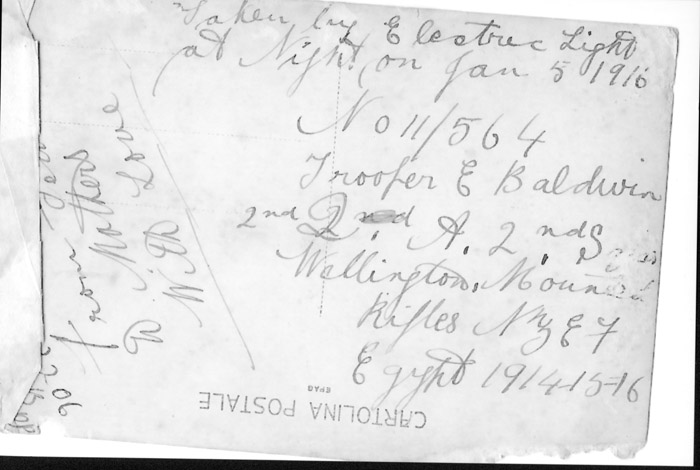 Taken by Electric Light
at Night, on Jan 5 1916
No 11/564
Trooper E Baldwin
2nd 2nd A. 2nd
Wellington. Mounted
Rifles NZ E F
Egypt 1914-15-16
from
Mothers
With Love
CARTOLINA POSTALE